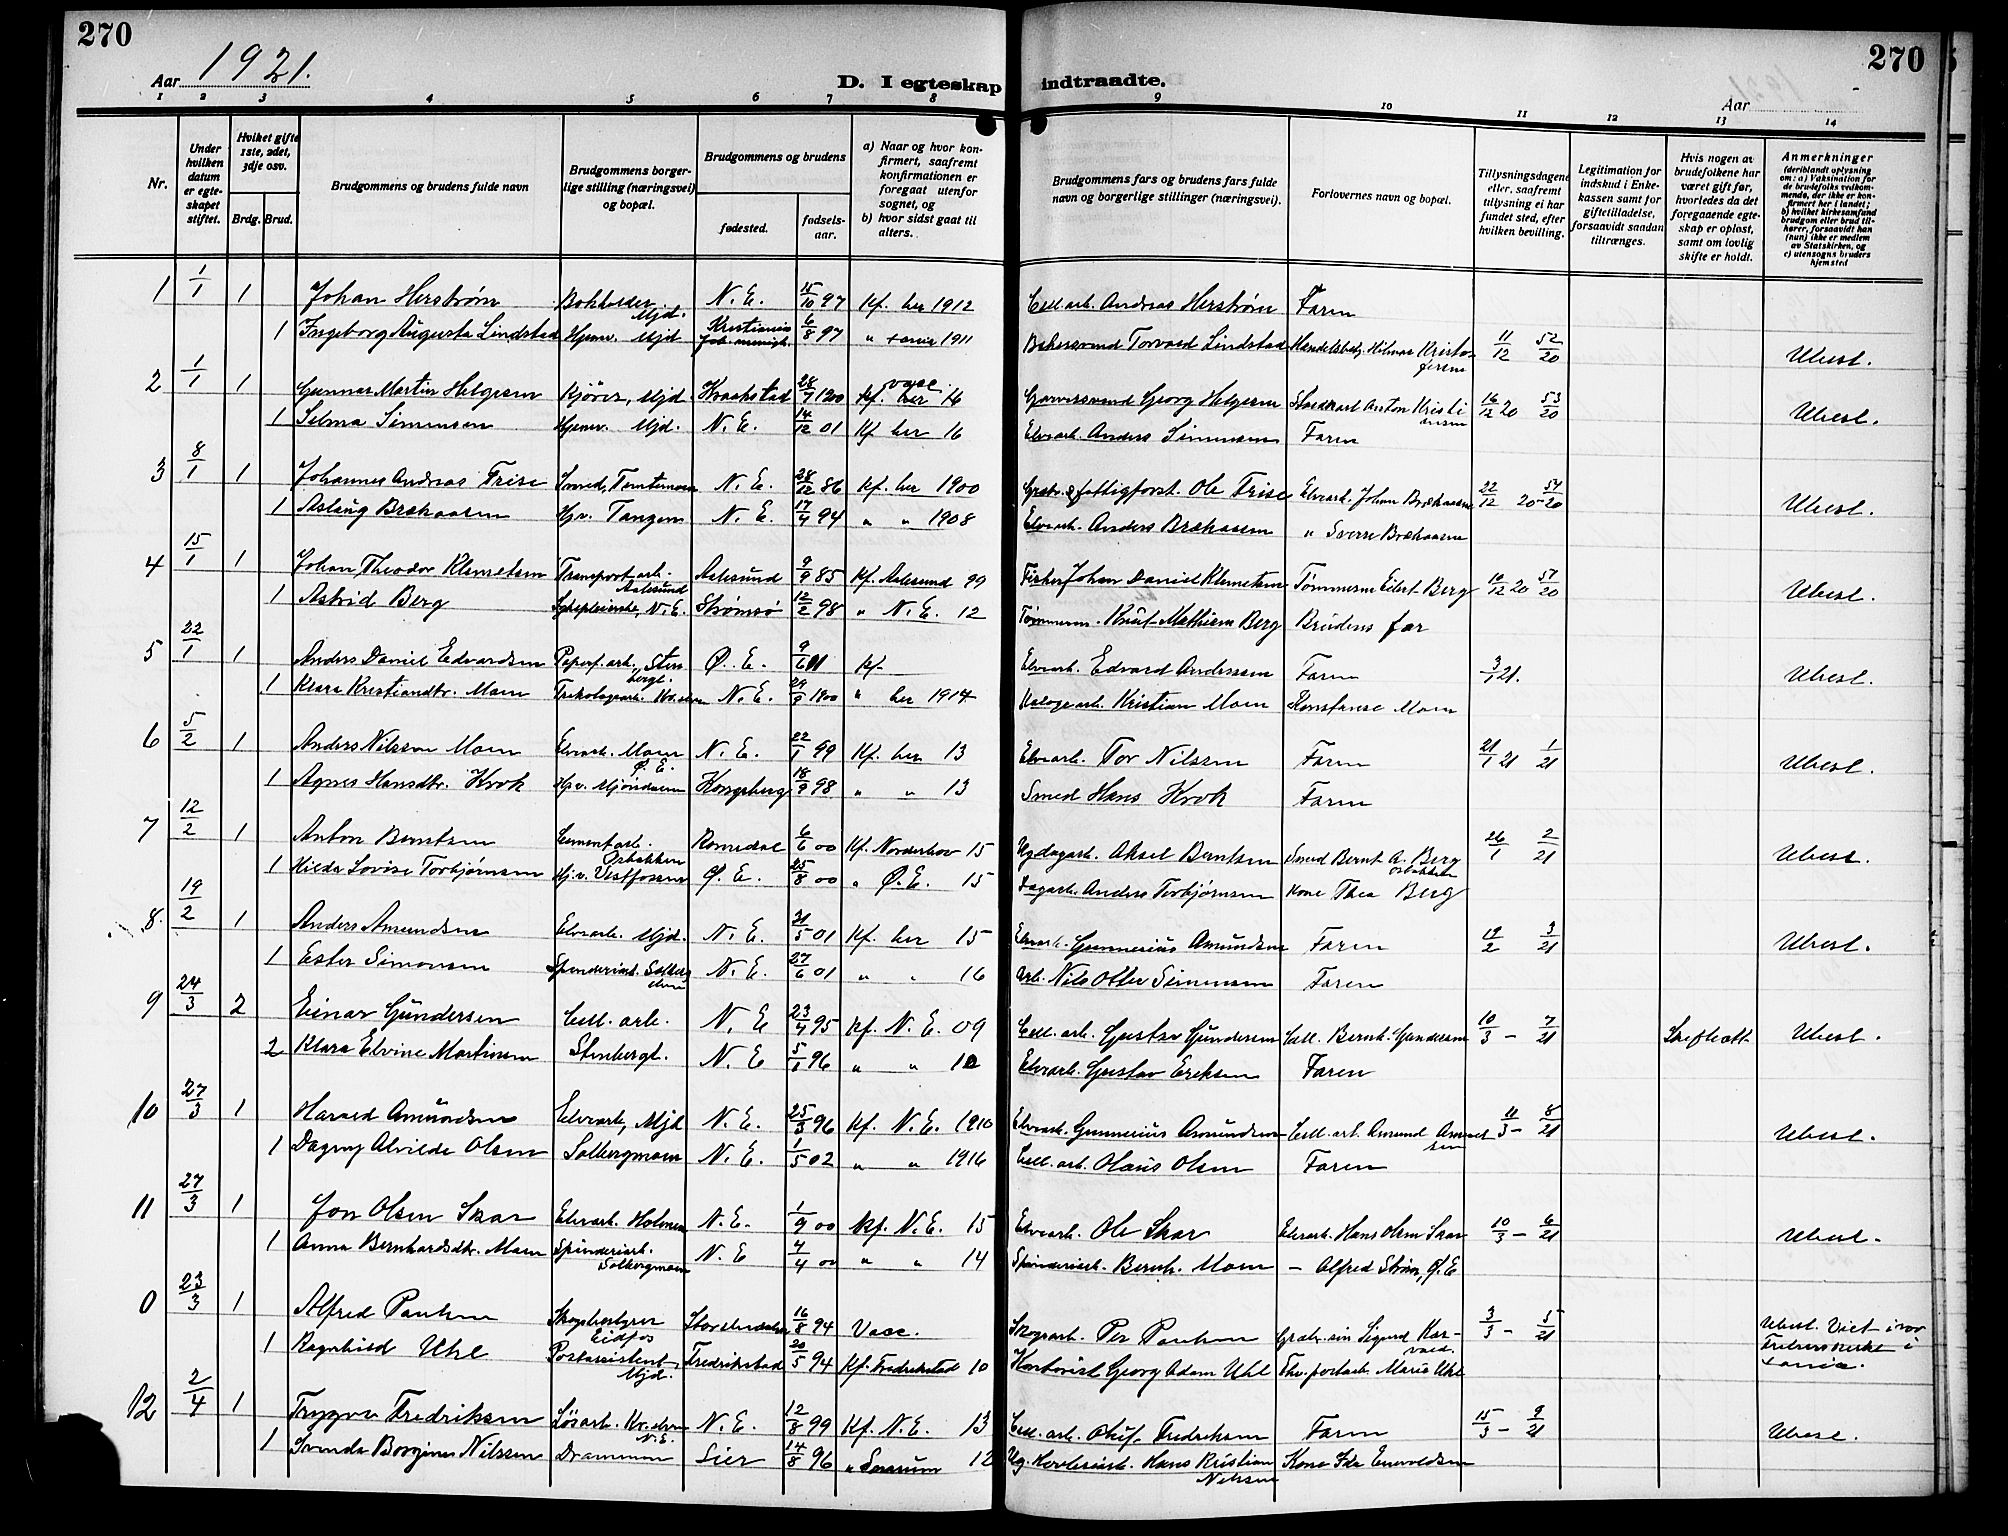 270
270
Aar 1921.
D. I egteskap indtraadte.
Aar
1 2 3 4 5 6 7 8 9 10 11 12 13 14
Nr.
Under hvilken datum er egteskapet stiftet.
Hvilket gifte 1ste, 2det, 3dje osv.
Brdg. Brud.
Brudgommens og brudens fulde navn
Brudgommens borgerlige stilling (næringsvei) og bopæl.
Brudgommens og brudens
fødested.
fødselsaar.
a) Naar og hvor konfirmert, saafremt konfirmationen er foregaat utenfor sognet, og
b) hvor sidst gaat til alters.
Brudgommens fars og brudens fars fulde navn og borgerlige stillinger (næringsvei).
Forlovernes navn og bopæl.
Tillysningsdagene eller, saafremt tillysning ei har fundet sted, efter hvilken bevilling.
Legitimation for indskud i Enkekassen samt for giftetilladelse, forsaavidt saadan tiltrænges.
Hvis nogen av brudefolkene har været gift før, hvorledes da det foregaaende egteskap er opløst, samt om lovlig skifte er holdt.
Anmerkninger (deriblandt oplysning om: a) Vaksination for de brudefolks vedkommende, der ikke er konfirmert her i landet; b) hvilket kirkesamfund brudgom eller brud tilhører, forsaavidt han (hun) ikke er medlem av Statskirken, og c) utensogns bruders hjemsted
1 1/1 1 Johan Herstrøm Bokholder Mjd. N. E. 15/10 97 Kf. her 1912 Cell. arb. Andreas Herstrøm Faren
1 Ingeborg Augusta Lindstad Hjemv. Mjd Kristiania 6/8 97 " 1911 Bakersvend Torvald Lindstad Handelsbetj. Hilmar Kristoffersen 11/12 52/20 Ubesl.
2 1/1 1 Gunnar Martin Helgesen Kjører, Mjd. Kraakstad 28/7 1900 Kf. her 16 Garversvend Georg Helgesen Anton Kristiansen 16/12 20 53/20 Ubesl.
1 Selma Simensen Hjemv. Mjd. N. E. 14/12 01 Kf her 16 Elvearb. Anders Simensen Faren
3 8/1 1 Johannes Andreas Frise Smed, N. E. 28/12 86 Kf. her 1900 Ole Frise Elvearb. Johan Brækaasen 22/12 20 54/20 Ubesl.
1 Aslaug Brækaasen Hjv. Tangen N. E. 17/4 94 " " 1908 Elvearb. Anders Brækaasen " Sverre Brækaasen
4 15/1 1 Johan Theodor Klemetsen Transportarb. Aalesund Aalesund 9/9 85 Kf. Aalesund 99 Fisker Johan Daniel Klemetsen Tømmerm Eilert Berg 10/12 20 57/20 Ubesl.
1 Astrid Berg Sykepleierske, N. E. Strømsø 12/2 98 " N. E. 12 Tømmerm. Knut Mathisen Berg Brudens far
5 22/1 1 Anders Daniel Edvardsen Papirf. arb. Stenbergt. Ø. E. 9/6 Kf. Elvearb. Edvard Anderssen Faren 3/1 21. Ubesl.
1 Klara Kristiandtr. Moen N. E. 29/9 1900 " her 1914 Kristian Moen Konstanse Moen
6 5/2 1 Anders Nilssen Moen Elvearb. Moen Ø. E. N. E. 22/1 99 Kf. her 13 Elvearb. Tor Nilssen Faren 21/1 21 1/21 Ubesl.
1 Agnes Hansdtr. Krok Hjv. Mjøndalen Kongsberg 18/9 98 " " 13 Smed Hans Krok Faren
7 12/2 1 Anton Berntsen Cementarb. Osbakken Romedal 6/6 00 Kf. Norderhov 15 Ug. dagarb. Aksel Berntsen Smed Bernt A. Berg Osbakken 26/1 2/21 Ubesl.
1 Hilda Lovise Torbjørnsen Hjv. Vestfossen Ø. E. 25/8 00 " Ø. E. 15 Dagarb. Anders Torbjørnsen Kone Thea Berg
8. 19/2 1 Anders Amundsen Elvearb. Mjd. N. E. 31/5 01 Kf. her 15 Elvearb. Gunnerius Amundsen Faren 19/2 3/21 Ubesl.
1 Ester Simonsen Spinderiarb. Solbergelven N. E. 27/6 01 " " 16 Arb. Nils Otto Simensen Faren
9 24/3 2 Einar Gundersen Cell. arb. N. E 23/4 95 Kf. N. E. 09 Cell. arb. Gustav Gundersen Cell. Bernh. Gundersen 10/3 – 7/21 Skifteatt. Ubesl.
2 Klara Elvine Martinsen Stenbergt. N. E 5/1 96 " " 10 Elvearb. Gustav Eriksen Faren
10 27/3 1 Harald Amundsen Elvearb, Mjd N. E. 25/3 96 Kf. N. E. 1910 Elvearb. Gunnerius Amundsen Cell. arb. Amund Amundsen 11/3 – 8/21 Ubesl.
1 Dagny Alvilde Olsen Solbergmoen N. E. 1/5 02 " " 1916 Cell. arb. Olaus Olsen Faren
11 27/3 1 Jon Olsen Skar Elvearb. Holmen N. E. 1/9 00 Kf. N. E. 15 Elvearb. Ole Skar Elvearb. Hans Olsen Skar 10/3 – 6/21 Ubesl.
1 Anna Bernhardsdtr. Moen Spinderiarb. Solbergmoen N. E 4/4 00 " " 14 Spinderiarb. Bernh. Moen – Alfred Strøm, Ø. E
0 23/3 1 Alfred Paulsen Skogbestyrer Eidfos 16/8 94 Vacc. Skogarb. Per Paulsen Sigurd 3/3 – 5/21 Ubesl. Viet i vor Frelsers kirke i
1 Ragnhild Uhl Postassistent Mjd. Fredrikstad 20/5 94 Kf. Fredrikstad 10 Kontorist Georg Adam Uhl Marie Uhl
12 2/4 1 Trygve Fredriksen Løsarb. N.E. N. E. 12/8 99 Kf. N. E. 13 Cell. arb. Oluf Fredriksen Faren 15/3 – 9/21 Ubesl.
1 Svenda Borgine Nilssen Drammen Lier 14/8 96 " 12 Hans Kristian Nilssen Kone Ida Enevoldsen